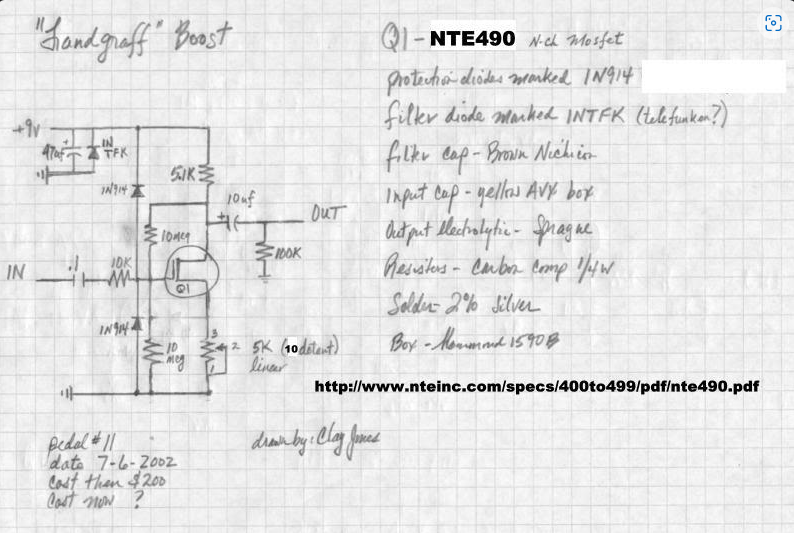 "Landgraff" Boost
+9V
47uf
+
1N
TFK
1N914
5.1K
10uf
+
OUT
10meg
100K
IN
.1
10K
Q1
1N914
10
meg
3
2
1
5K (10 detent)
linear
pedal #11
date 7-6-2002
cost then $200
cost now ?
drawn by: Clay Jones
Q1 - NTE490 N-ch Mosfet
protection diodes marked 1N914
filter diode marked INTFK (telefunken?)
filter cap - Brown Nichicon
Input cap - yellow AVX box
Output Electrolytic - Sprague
Resistors - Carbon comp 1/4 W
Solder - 2% Silver
Box - Hammond 1590B
http://www.nteinc.com/specs/400to499/pdf/nte490.pdf